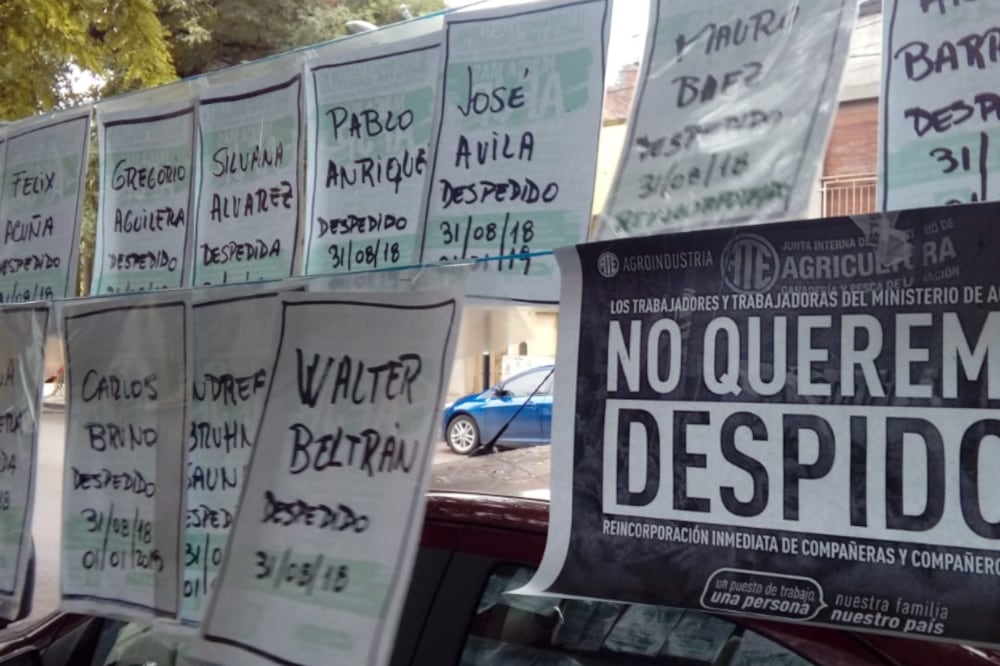 FELIX
ACUÑA
DESPEDIDO
31/08/18
GREGORIO
AGUILERA
DESPEDIDO
SILVANA
ALVAREZ
DESPEDIDA
PABLO
ANRIQUE
DESPEDIDO
31/08/18
JOSÉ
AVILA
DESPEDIDO
31/08/18
MAURO
BAEZ
DESPEDIDO
31/08/18
BARR
DESPE
31/
CARLOS
BRUNO
DESPEDIDO
31/08/18
01/01/2019
NDREF
BRUHN
SAUN
ESPED
WALTER
BELTRÁN
DESPEDIDO
31/08/18
ATE AGROINDUSTRIA
ATE
JUNTA INTERNA DE
AGRICULTURA
GANADERÍA Y PESCA DE LA NACIÓN
LOS TRABAJADORES Y TRABAJADORAS DEL MINISTERIO DE A
NO QUEREM
DESPIDO
REINCORPORACIÓN INMEDIATA DE COMPAÑERAS Y COMPAÑERO
un puesto de trabajo,
una persona
nuestra familia
nuestro país